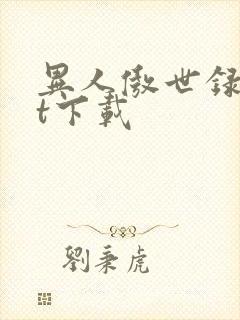 異人傲世録
t下載
劉秉虎